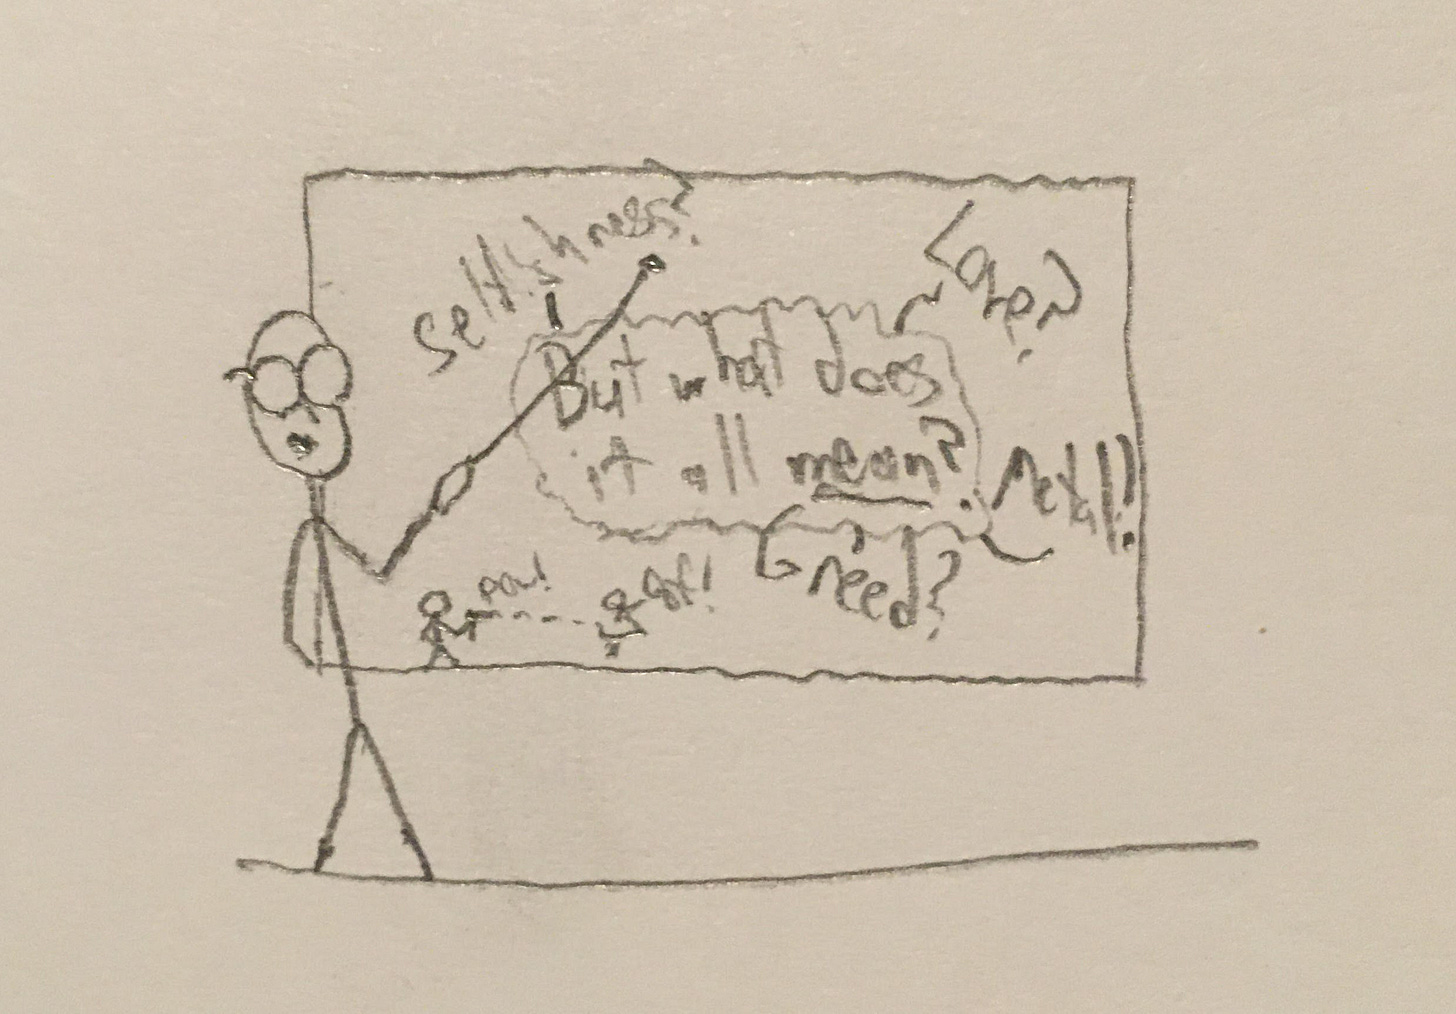 Selfishness?
Love?
But what does
it all mean?
Metal!
need?
pow!